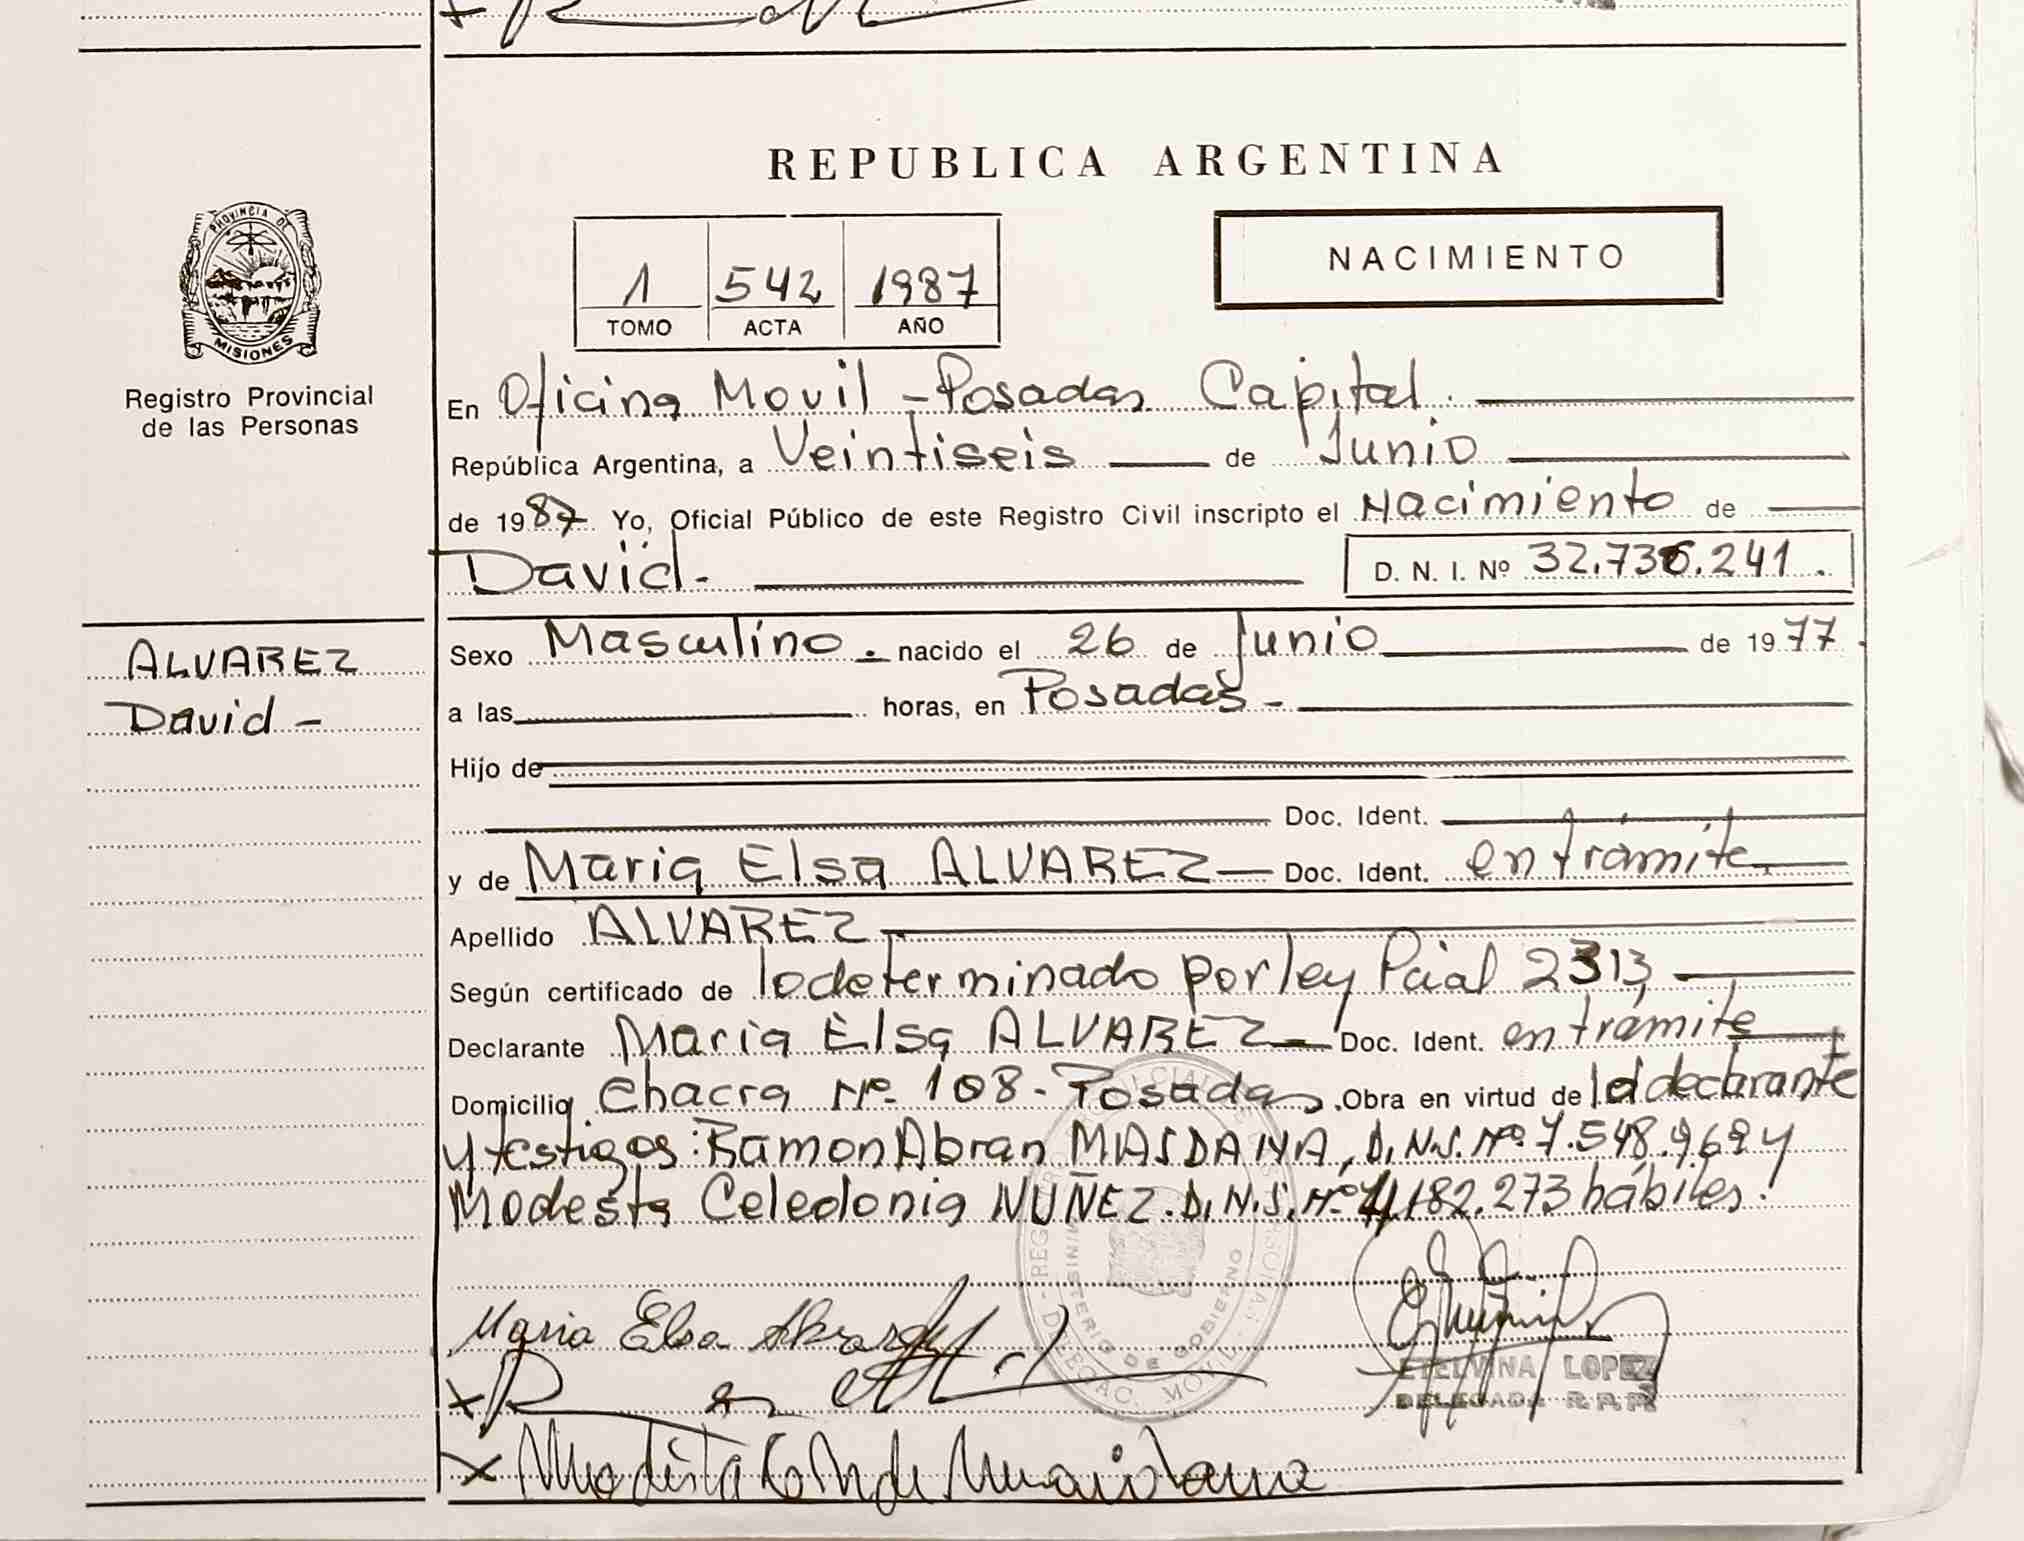 REPUBLICA ARGENTINA
PROVINCIA DE
MISIONES
Registro Provincial
de las Personas
1 542 1987
TOMO ACTA AÑO
NACIMIENTO
En Oficina Movil - Posadas Capital.
República Argentina, a Veintiseis de Junio
de 1987 Yo, Oficial Público de este Registro Civil inscripto el Nacimiento de
David- D. N. I. Nº 32.736.241.
ALVAREZ
David -
Sexo Masculino. nacido el 26 de Junio de 1977
a las horas, en Posadas -
Hijo de
Doc. Ident.
y de Maria Elsa ALVAREZ- Doc. Ident. en trámite
Apellido ALVAREZ
Según certificado de lo determinado por ley Pcial 2313
Declarante Maria Elsa ALVAREZ- Doc. Ident. en trámite
Domicilio chacra Nº 108 - Posadas. Obra en virtud de la declarante
y testigos: Ramon Abran MASDANA, D.N.I. Nº 7.548.969 y
Modesta Celedonia NUÑEZ. D.N.I. Nº 182.273 hábiles.
MINISTERIO DE GOBIERNO
DELEGAC. MOVIL
Maria Elsa
ETELVINA LOPEZ
DELEGADA R.P.P.